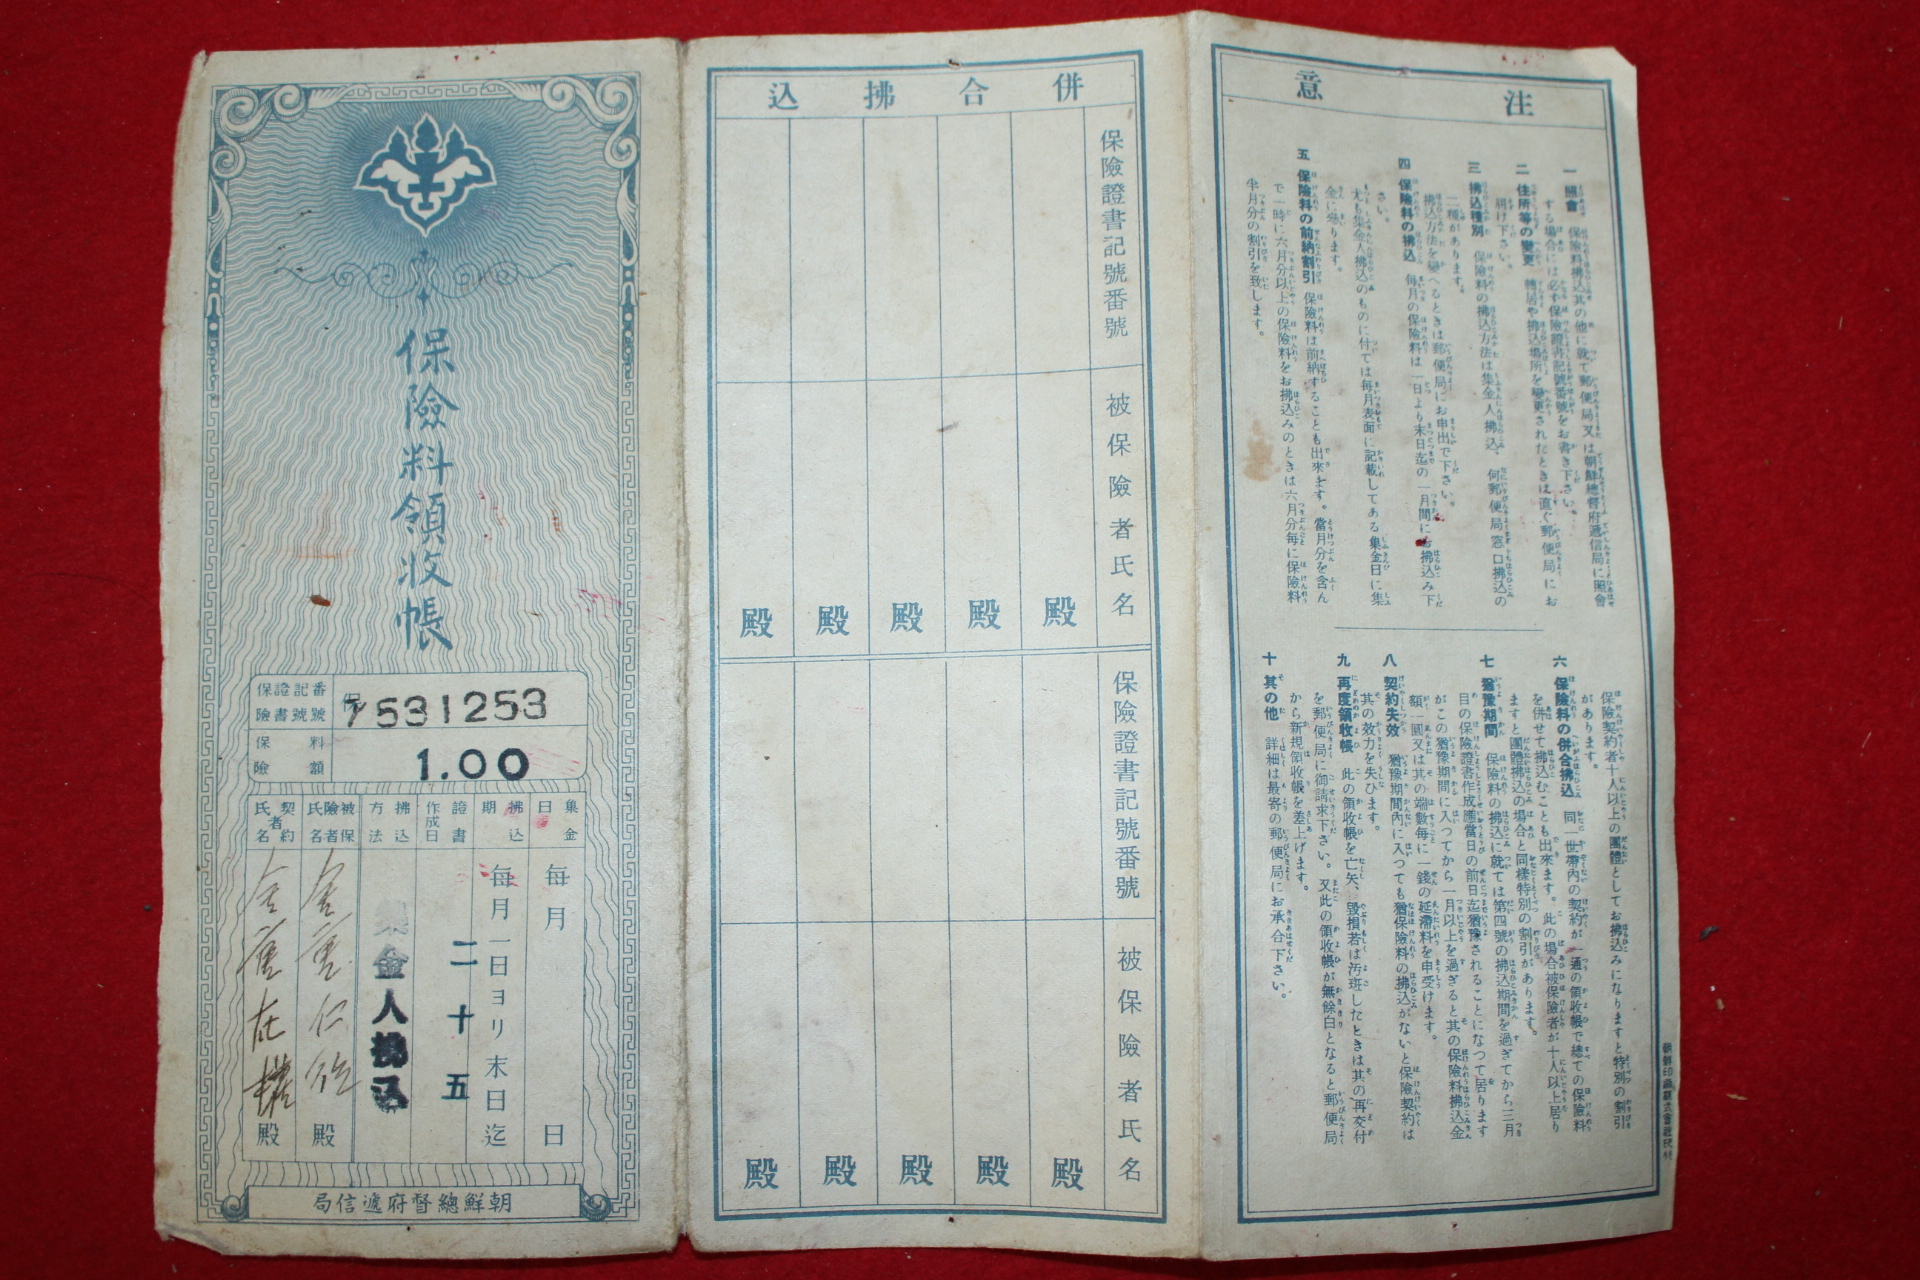 保險料領收帳
保險證書記號番號
531253
保險料額
1.00
集金日
毎月 日
拂込期
毎月一日ヨリ末日迄
證書作成日
二十五
拂込方法
集金人拂込
被保險者氏名
殿
契約者氏名
殿
朝鮮總督府遞信局
併合拂込
保險證書記號番號
被保險者氏名
殿
殿
殿
殿
殿
保險證書記號番號
被保險者氏名
殿
殿
殿
殿
殿
注意
一 照會 保險料拂込其の他に就て郵便局又は朝鮮總督府遞信局に照會
する場合には必ず保險證書記號番號をお書き下さい。
二 住所等の變更 轉居や拂込場所を變更されたときは直ぐ郵便局にお
届け下さい。
三 拂込種別 保險料の拂込方法は集金人拂込、何郵便局窓口拂込の
二種があります。
拂込方法を變へるときは郵便局にお申出で下さい。
四 保險料の拂込 毎月の保險料は一日より末日迄の一月間にお拂込み下
さい。
尤も集金人拂込のものに付ては毎月表面に記載してある集金日に集
金に參ります。
五 保險料の前納割引 保險料は前納することも出來ます。當月分を含ん
で一時に六月分以上の保險料をお拂込みのときは六月分毎に保險料
半月分の割引を致します。
保險契約者十人以上の團體としてお拂込みになりますと特別の割引
があります。
六 保險料の併合拂込 同一世帶內の契約が一通の領收帳で總ての保險料
を併せて拂込むことも出來ます。此の場合被保險者が十人以上居り
ますと團體拂込の場合と同樣特別の割引があります。
七 猶豫期間 保險料の拂込に就ては第四號の拂込期間を過ぎてから三月
目の保險證書作成應當日の前日迄猶豫されることになつて居ります
がこの猶豫期間に入つてから一月以上を過ぎると其の保險料拂込金
額一圓又は其の端數每に一錢の延滯料を申受けます。
八 契約失效 猶豫期間內に入つても猶保險料の拂込がないと保險契約は
其の效力を失ひます。
九 再度領收帳 此の領收帳を亡失、毀損若は汚斑したときは其の再交付
を郵便局に御請求下さい。又此の領收帳が無餘白となると郵便局
から新規領收帳を差上げます。
十 其の他 詳細は最寄の郵便局にお承合下さい。